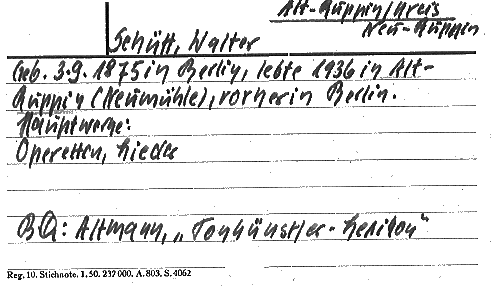 Alt-Ruppin/Kreis
Neu-Ruppin
Schütt, Walter
Geb. 3.9.1875 in Berlin, lebte 1936 in Alt-
Ruppin (Neumühle), vorher in Berlin.
Hauptwerke:
Operetten, Lieder
BQ: Altmann, „Tonkünstler-Lexikon“
Reg. 10. Stichnote. 1,50. 237000. A. 803. S. 4062